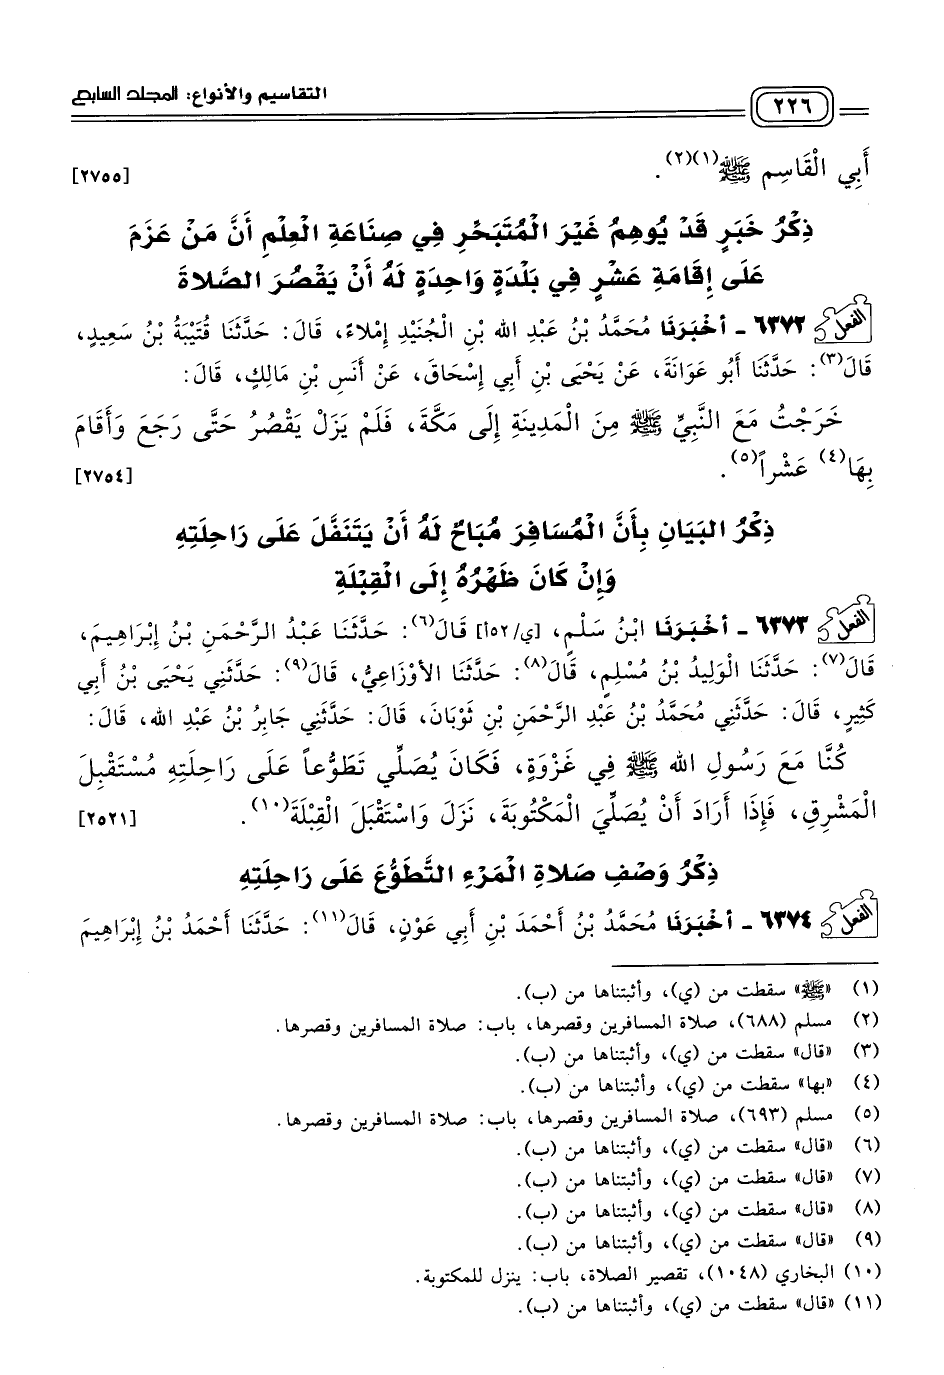 التقاسيم والأنواع: المجلد السابع
٢٢٦
أَبِي الْقَاسِمِ ﷺ(١)(٢). [٢٧٥٥]
ذِكْرُ خَبَرٍ قَدْ يُوهِمُ غَيْرَ الْمُتَبَحِّرِ فِي صِنَاعَةِ الْعِلْمِ أَنَّ مَنْ عَزَمَ
عَلَى إِقَامَةِ عَشْرٍ فِي بَلْدَةٍ وَاحِدَةٍ لَهُ أَنْ يَقْصُرَ الصَّلَاةَ
الفعل ٦٣٧٢ - أخْبَرَنَا مُحَمَّدُ بْنُ عَبْدِ الله بْنِ الْجُنَيْدِ إِمْلاءً، قَالَ: حَدَّثَنَا قُتَيْبَةُ بْنُ سَعِيدٍ،
قَالَ(٣): حَدَّثَنَا أَبُو عَوَانَةَ، عَنْ يَحْيَى بْنِ أَبِي إِسْحَاقَ، عَنْ أَنَسِ بْنِ مَالِكٍ، قَالَ:
خَرَجْتُ مَعَ النَّبِيِّ ﷺ مِنَ الْمَدِينَةِ إِلَى مَكَّةَ، فَلَمْ يَزَلْ يَقْصُرُ حَتَّى رَجَعَ وَأَقَامَ
بِهَا(٤) عَشْراً(٥). [٢٧٥٤]
ذِكْرُ البَيَانِ بِأَنَّ الْمُسَافِرَ مُبَاحٌ لَهُ أَنْ يَتَنَفَّلَ عَلَى رَاحِلَتِهِ
وَإِنْ كَانَ ظَهْرُهُ إِلَى الْقِبْلَةِ
الفعل ٦٣٧٣ - أخْبَرَنَا ابْنُ سَلْمٍ، [ي/٥٢أ] قَالَ(٦): حَدَّثَنَا عَبْدُ الرَّحْمَنِ بْنُ إِبْرَاهِيمَ،
قَالَ(٧): حَدَّثَنَا الْوَلِيدُ بْنُ مُسْلِمٍ، قَالَ(٨): حَدَّثَنَا الأَوْزَاعِيُّ، قَالَ(٩): حَدَّثَنِي يَحْيَى بْنُ أَبِي
كَثِيرٍ، قَالَ: حَدَّثَنِي مُحَمَّدُ بْنُ عَبْدِ الرَّحْمَنِ بْنِ ثَوْبَانَ، قَالَ: حَدَّثَنِي جَابِرُ بْنُ عَبْدِ الله، قَالَ:
كُنَّا مَعَ رَسُولِ الله ﷺ فِي غَزْوَةٍ، فَكَانَ يُصَلِّي تَطَوُّعاً عَلَى رَاحِلَتِهِ مُسْتَقْبِلَ
الْمَشْرِقِ، فَإِذَا أَرَادَ أَنْ يُصَلِّيَ الْمَكْتُوبَةَ، نَزَلَ وَاسْتَقْبَلَ الْقِبْلَةَ(١٠). [٢٥٢١]
ذِكْرُ وَصْفِ صَلاةِ الْمَرْءِ التَّطَوُّعَ عَلَى رَاحِلَتِهِ
الفعل ٦٣٧٤ - أخْبَرَنَا مُحَمَّدُ بْنُ أَحْمَدَ بْنِ أَبِي عَوْنٍ، قَالَ(١١): حَدَّثَنَا أَحْمَدُ بْنُ إِبْرَاهِيمَ
(١) «ﷺ» سقطت من (ي)، وأثبتناها من (ب).
(٢) مسلم (٦٨٨)، صلاة المسافرين وقصرها، باب: صلاة المسافرين وقصرها.
(٣) «قال» سقطت من (ي)، وأثبتناها من (ب).
(٤) «بها» سقطت من (ي)، وأثبتناها من (ب).
(٥) مسلم (٦٩٣)، صلاة المسافرين وقصرها، باب: صلاة المسافرين وقصرها.
(٦) «قال» سقطت من (ي)، وأثبتناها من (ب).
(٧) «قال» سقطت من (ي)، وأثبتناها من (ب).
(٨) «قال» سقطت من (ي)، وأثبتناها من (ب).
(٩) «قال» سقطت من (ي)، وأثبتناها من (ب).
(١٠) البخاري (١٠٤٨)، تقصير الصلاة، باب: ينزل للمكتوبة.
(١١) «قال» سقطت من (ي)، وأثبتناها من (ب).